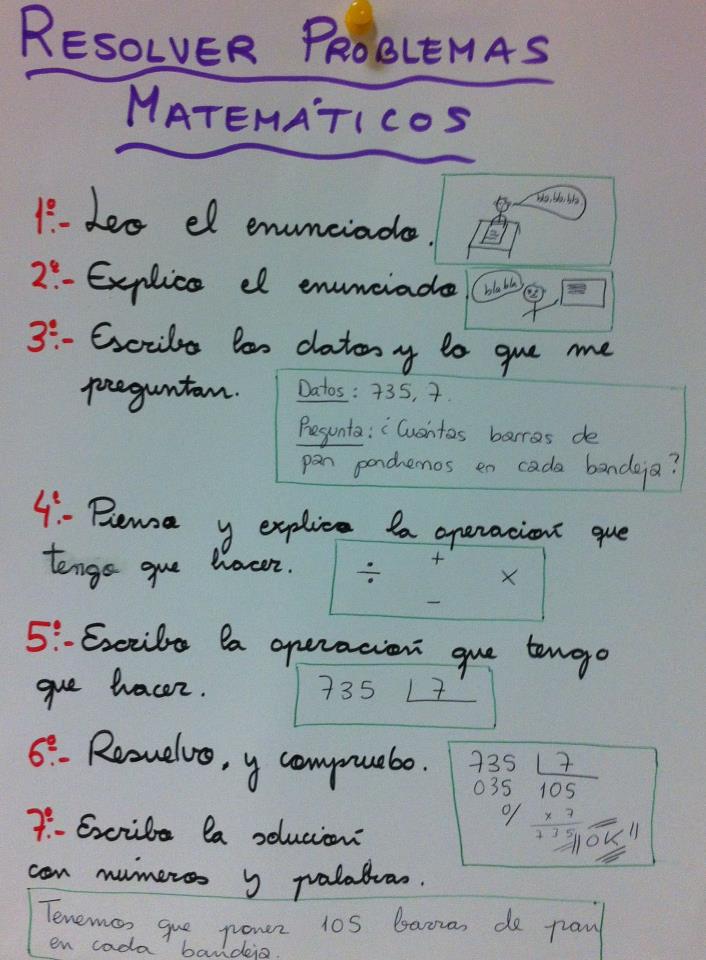 RESOLVER PROBLEMAS
MATEMÁTICOS
1º.- Leo el enunciado.
bla, bla, bla
2º.- Explico el enunciado
bla bla
3º.- Escribo los datos y lo que me
preguntan.
Datos: 735, 7.
Pregunta: ¿Cuántas barras de
pan pondremos en cada bandeja?
4º.- Pienso y explico la operación que
tengo que hacer.
÷ + - x
5º.- Escribo la operación que tengo
que hacer.
735 7
6º.- Resuelvo, y compruebo.
735 7
035 105
0/ x 7
735 ¡¡OK!!
7º.- Escribo la solución
con números y palabras.
Tenemos que poner 105 barras de pan
en cada bandeja.